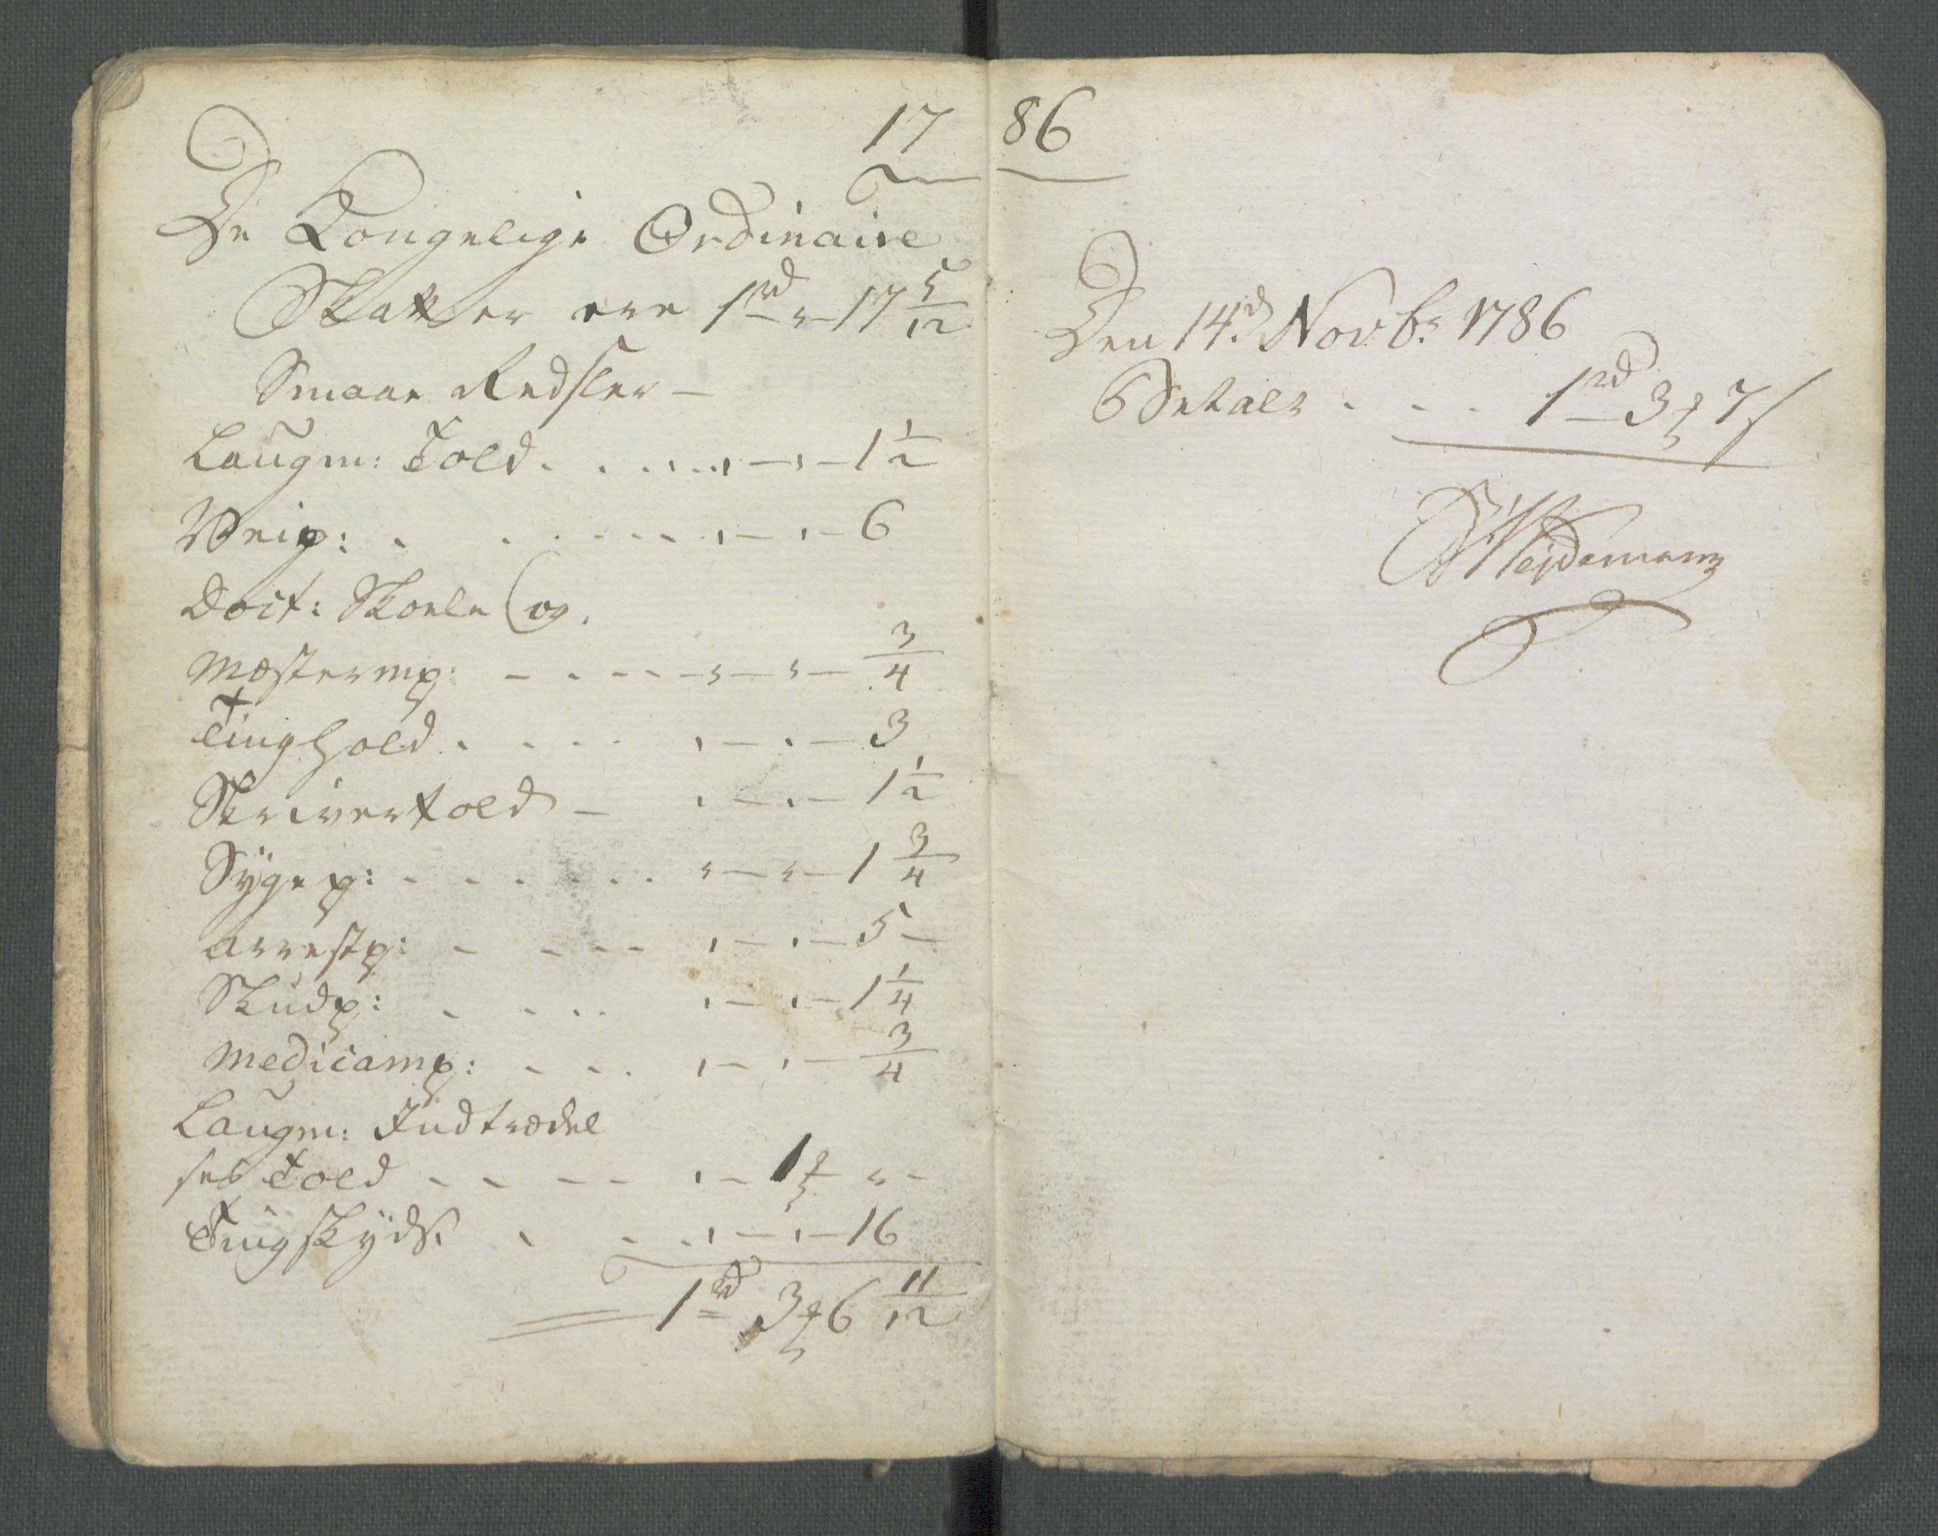 17 86
De Kongelige Ordinaire
Skatter ere 1 rd " 17 5/12
Smaae Redsler —
Laugm: Told . . . . " — " — 1 1/2
Veip: . . . . . " — " — 6
Doct: Skoele og
Mestermp: - - - - " — " — 3/4
Tinghold . . . . " — " — 3
Skrivertold — " — " — 1 1/2
Sÿgep: . . . . . " — " — 1 3/4
Arrestp: - - - - " — " — 5 —
Skudp: . . . . " — " — 1 1/4
Medicamp: . . . " — " — 3/4
Laugm: Indtrædel
ses Told - - - - " — 1 ƶ " -
Tingskÿds: . . . " — " — 16
1 rd 3 ƶ 6 11/12
Den 14d Novbr 1786
Betalt . . . 1 rd 3 ƶ 7 s
Weÿdemann